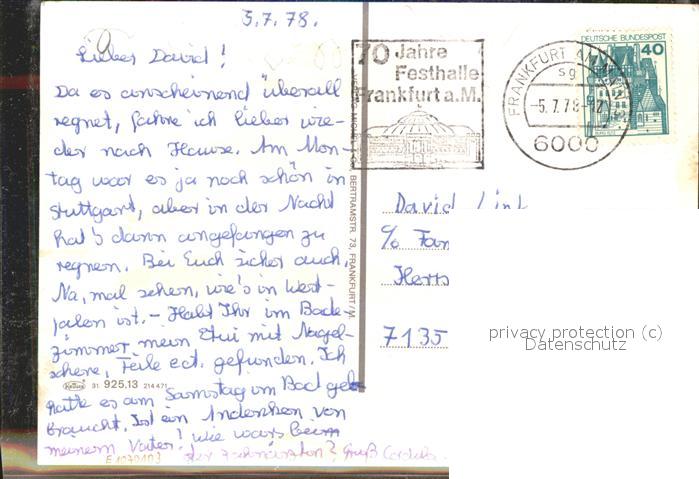 5.7.78.
Lieber David!
Da es anscheinend überall
regnet, fahre ich lieber wie-
der nach Hause. Am Mon-
tag war es ja noch schön in
Stuttgart, aber in der Nacht
hat's dann angefangen zu
regnen. Bei Euch sicher auch.
Na, mal sehen, wie's in West-
falen ist. – Habt Ihr im Bade-
zimmer mein Etui mit Nagel-
schere, Feile ect. gefunden. Ich
hatte es am Samstag im Bad ge-
braucht. Ist ein Andenken von
meinem Vater! Wie wars beim
der Zahnärztin? Gruß Cordula
70 Jahre
Festhalle
Frankfurt a.M.
FRANKFURT AM MAIN
sg
-5.7.78-
6000
DEUTSCHE BUNDESPOST
40
BERTRAMSTR. 73, FRANKFURT/M.
David
c/o Fam
Herrs
7135
privacy protection (c)
Datenschutz
31 925,13 214 471